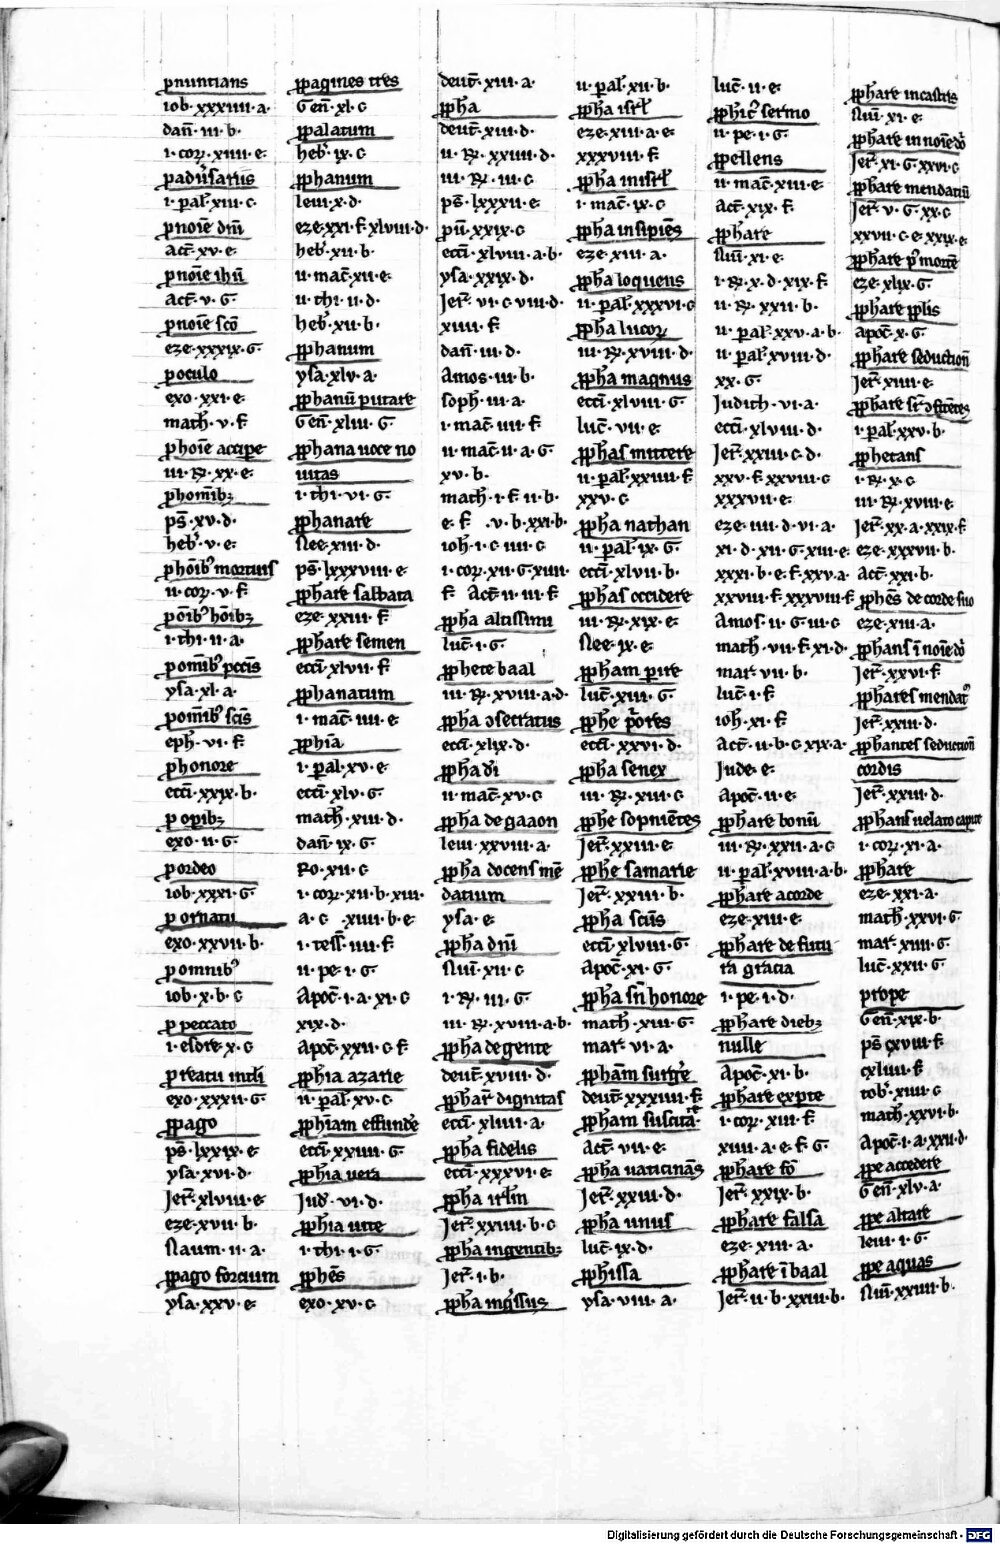 pnuntians
iob· xxxiiii· a·
dan̄· iii· b·
i· cor̄· xiiii· e·
padu̓satus
i· pal̓· xiii· c·
pnoīe dn̄i
act̄· xv· e·
pnoīe ih̄u
act̄· v· G·
pnoīe sc̄o
eze· xxxix· G·
poculo
exo· xxi· e·
math̄· v· f·
phoīe accipe
iii· R̄· xx· e·
phomīb;
ps̄· xv· d·
heb̓· v· e·
phoīb; mortuis
ii· cor̄· v· f·
poīb; hoīb;
i· thi· ii· a·
pomīb; pcc̄is
ysa· xl· a·
pomīb; sc̄is
eph̓· vi· f·
phonore
ecc̄i· xxix· b·
p opib;
exo· ii· G·
pordeo
iob· xxxi· G·
p ornatu
exo· xxvii· b·
p omnib;
iob· x· b· c
p peccato
i· esdre· x· c
p reatu
exo· xxxii· G·
ppago
ps̄· lxxix· e·
ysa· xvi· d·
Jer̄· xlviii· e·
eze· xvii· b·
Naum· ii· a·
ppago forcium
ysa· xxv· e·
ppagines tres
Gen̄· xl· c
ppalatum
heb̓· ix· c
pphanum
leui· x· d·
eze· xxi· f· xlviii· d·
heb̓· xii· b·
ii· mac̄· xii· e·
ii· thi· ii· d·
heb̓· xii· b·
pphanum
ysa· xlv· a·
pphanū putare
Gen̄· xliii· G·
pphana uoce no
uitas
i· thi· vi· G·
pphanare
Nee· xiii· d·
ps̄· lxxxviii· e·
pphare sabbata
eze· xxiii· f·
pphare semen
ecc̄i· xlvii· f·
pphanatum
i· mac̄· iiii· e·
pphīa
i· pal̓· xv· e·
ecc̄i· xlv· G·
math̄· xiii· d·
dan̄· ix· G·
Ro· xii· c
i· cor̄· xii· b· xiii·
a· c· xiiii· b· e·
i· tess̄· iiii· f·
ii· pe· i· G·
Apoc̄· i· a· xi· c
xix· d·
Apoc̄· xxii· c· f·
pphīa azarie
ii· pal̓· xv· c·
pphīam effunde̓
ecc̄i· xxiiii· G·
pphīa uera
Jud̓· vi· d·
pphīa uite
i· thi· i· G·
pphēs
exo· xv· c·
deut̄· xiii· a·
ppha
deut̄· xiii· d·
ii· R̄· xxiiii· d·
iii· R̄· iii· c
ps̄· lxxxii· e·
pu̓· xxix· c
ecc̄i· xlviii· a· b·
ysa· xxix· d·
Jer̄· vi· c viii· d·
xiiii· f·
dan̄· iii· d·
Amos· iii· b·
soph̄· iii· a·
i· mac̄· iiii· f·
ii· mac̄· ii· a· G·
xv· b·
math̄· i· f· ii· b·
e· f· v· b· xxi· b·
ioh̄· i· c iiii· c
i· cor̄· xii· G· xiiii·
f· Act̄· ii· iii· f·
ppha altissimi
luc̄· i· G·
pphete baal
iii· R̄· xviii· a· d·
ppha ↄsecratus
ecc̄i· xlix· d·
ppha d̓i
ii· mac̄· xv· c
ppha de gaaon
leui xxviii· a·
ppha docens mē
datium
ysa· e·
ppha dn̄i
Nūi· xii· c
i· R̄· iii· G·
iii· R̄· xviii· a· b·
ppha de gente
deut̄· xviii· d·
pphar̄ dignitas
ecc̄i· xliiii· a·
ppha fidelis
ecc̄i· xxxvi· e·
ppha irl̄m
Jer̄· xxiiii· b· c
ppha ingentib;
Jer̄· i· b·
ppha
ii· pal̓· xii· b·
ppha isrl̄
eze· xiii· a· e·
xxxviii· f·
ppha inisrl̄
i· mac̄· ix· c
ppha insipiēs
eze· xiii· a·
ppha loquens
ii· pal̓· xxxvi· c
ppha lucor̄
iii· R̄· xviii· d·
ppha magnus
ecc̄i· xlviii· G·
luc̄· vii· e·
pphas mittere
ii· pal̓· xxiiii· f·
xxv· c
ppha nathan
ii· pal̓· ix· G·
ecc̄i· xlvii· b·
pphas occidere
iii· R̄· xix· e·
Nee· ix· e·
ppham pire
luc̄· xiii· G·
pphe p̓ores
ecc̄i· xxvi· d·
ppha senex
iii· R̄· xiii· c
pphe sopniētes
Jer̄· xxiii· e·
pphe samarie
Jer̄· xxiii· b·
ppha scūs
ecc̄i· xlviii· G·
Apoc̄· xi· G·
ppha sn̄ honore
math̄· xiii· G·
mar̄· vi· a·
ppham surge̓
deut̄· xxxiiii· f·
ppham suscitar̄
Act̄· vii· e·
ppha uaticinās
Jer̄· xxiii· d·
ppha unus
luc̄· ix· d·
pphissa
ysa· viii· a·
luc̄· ii· e·
pphic̓ sermo
ii· pe· i· G·
ppellens
ii· mac̄· xiii· e·
Act̄· xix· f·
pphare
Nūi· xi· e·
i· R̄· x· d· xix· f·
ii· R̄· xxii· b·
ii· pal̓· xxv· a· b·
ii· pal̓· xviii· d·
xx· G·
Judith· vi· a·
ecc̄i· xlviii· d·
Jer̄· xxiii· c· d·
xxv· f· xxviii· c
xxxvii· e·
eze· iiii· d· vi· a·
xi· d· xii· G· xiii· e·
xxxi· b· e· f· xxv· a·
xxviii· f· xxxviii· f·
Amos· ii· G· iii· c
math̄· vii· f· xi· d·
mar̄· vii· b·
luc̄· i· f·
ioh̄· xi· f·
Act̄· ii· b· c xix· a·
Jude· e·
Apoc̄· ii· e·
pphare bonū
iii· R̄· xxii· a· c
ii· pal̓· xviii· a· b·
pphare acorde
eze· xiii· e·
pphare de futu
ra gracia
i· pe· i· d·
pphare dieb;
nulle
Apoc̄· xi· b·
pphare exp̄te
i· cor̄· xiii· f·
xiiii· a· e· f· G·
pphare fō
Jer̄· xxix· b·
pphare falsa
eze· xiii· a·
pphare ī baal
Jer̄· ii· b· xxiii· b·
pphare incastris
Nūi· xi· e·
pphare in noīe dī
Jer̄· xi· G· xxvi· c
pphare mendatiū
Jer̄· v· G· xx· c
xxvii· c· e· xxix· e·
pphare p̓ mortē
eze· xlix· G·
pphare pplis
apoc̄· x· G·
pphare seductiōn
Jer̄· xiiii· e·
i· pal̓· xxv· b·
pphetans
i· R̄· x· c
iii· R̄· xviii· e·
Jer̄· xx· a· xxix· f·
eze· xxxvii· b·
Act̄· xxi· b·
pphēs de corde suo
eze· xiii· a·
pphans ī noīe dī
Jer̄· xxvi· f·
pphares mendat̓
Jer̄· xxiii· d·
pphantes seductiōn
cordis
Jer̄· xxiii· d·
pphans uelato capite
i· cor̄· xi· a·
pphare
eze· xxi· a·
math̄· xxvi· G·
mar̄· xiiii· G·
luc̄· xxii· G
prope
Gen̄· xix· b·
ps̄ cxviii· f·
cxliiii· f·
tob̓· xiiii· c
math̄· xxvi· b·
Apoc̄· i· a· xxii· d·
ppe accedere
Gen̄· xlv· a·
ppe altare
leui· i· G·
ppe aquas
Nūi· xxiiii· b·
Digitalisierung gefördert durch die Deutsche Forschungsgemeinschaft - DFG